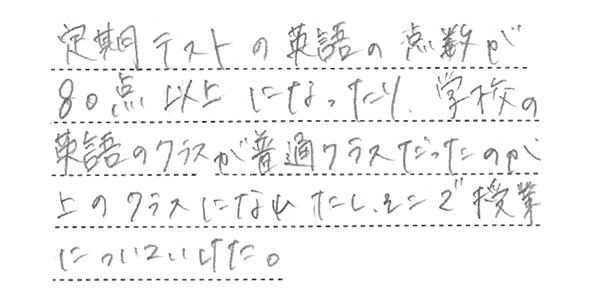 定期テストの英語の点数が
80点以上になったり、学校の
英語のクラスが普通クラスだったのが
上のクラスになれたし、そこで授業
についていけた。